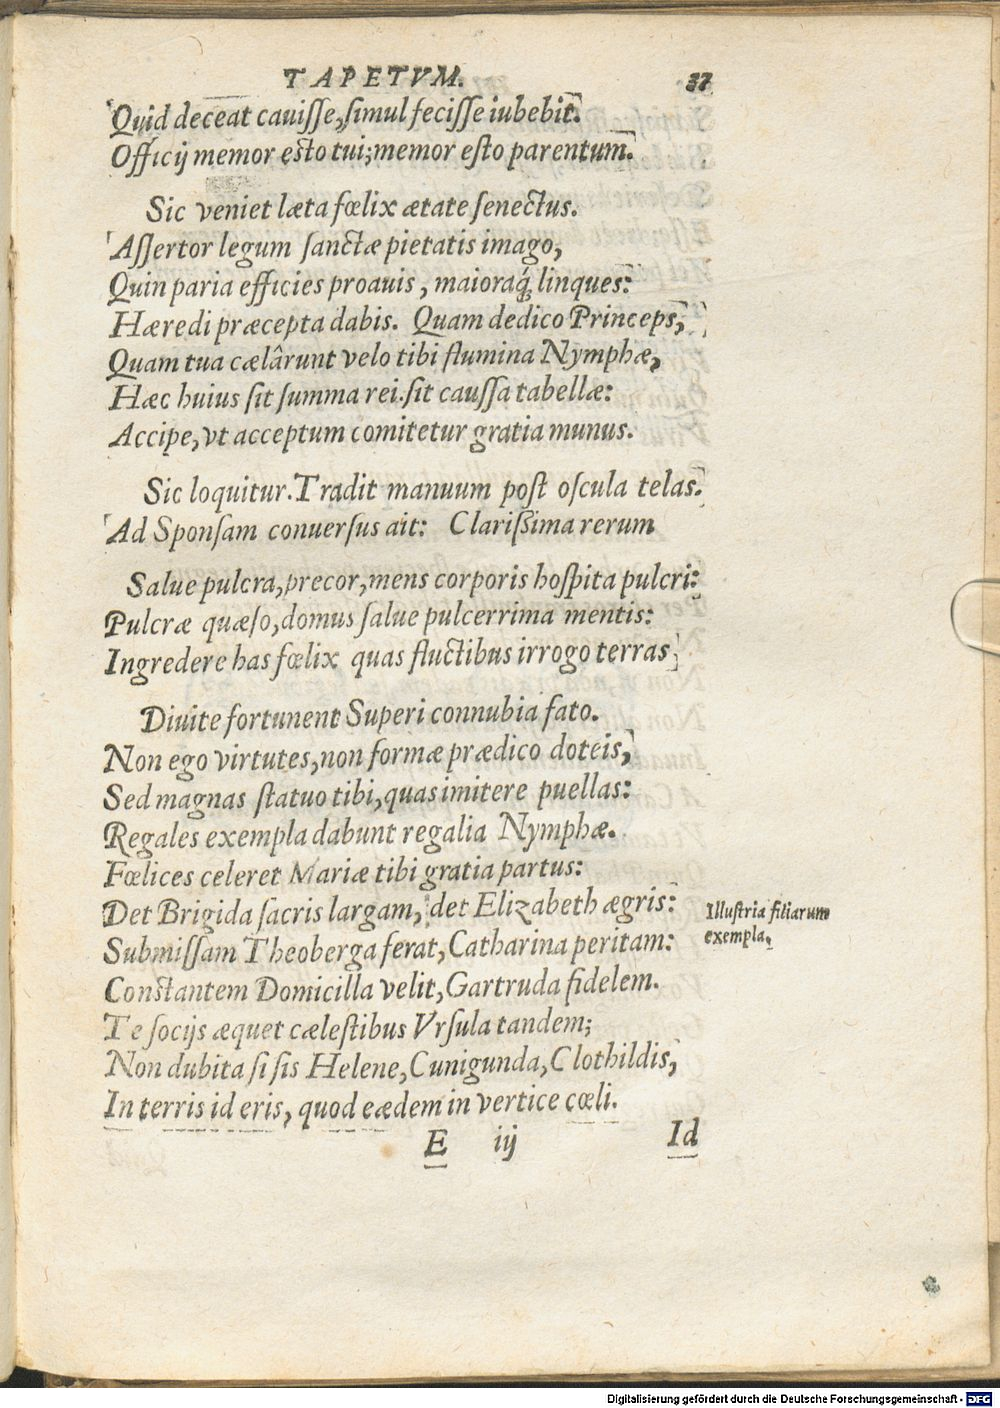 TAPETVM. 37
Quid deceat cauiſſe, ſimul feciſſe iubebit.
Officij memor eſto tui; memor eſto parentum.
Sic veniet læta fœlix ætate ſenectus.
Aſſertor legum ſanctæ pietatis imago,
Quin paria efficies proauis, maioraq́; linques:
Hæredi præcepta dabis. Quam dedico Princeps,
Quam tua cælârunt velo tibi flumina Nymphæ,
Hæc huius ſit ſumma rei. ſit cauſſa tabellæ:
Accipe, vt acceptum comitetur gratia munus.
Sic loquitur. Tradit manuum poſt oſcula telas.
Ad Sponſam conuerſus ait: Clariſſima rerum
Salue pulcra, precor, mens corporis hoſpita pulcri:
Pulcræ quæſo, domus ſalue pulcerrima mentis:
Ingredere has fœlix quas fluctibus irrogo terras
Diuite fortunent Superi connubia fato.
Non ego virtutes, non formæ prædico doteis,
Sed magnas ſtatuo tibi, quas imitere puellas:
Regales exempla dabunt regalia Nymphæ.
Fœlices celeret Mariæ tibi gratia partus:
Det Brigida ſacris largam, det Elizabeth ægris:
Illuſtria filiarum
exempla.
Submiſſam Theoberga ferat, Catharina peritam:
Conſtantem Domicilla velit, Gartruda fidelem.
Te ſocijs æquet cæleſtibus Vrſula tandem;
Non dubita ſi ſis Helene, Cunigunda, Clothildis,
In terris id eris, quod eædem in vertice cœli.
E iij Id
Digitalisierung gefördert durch die Deutsche Forschungsgemeinschaft - DFG